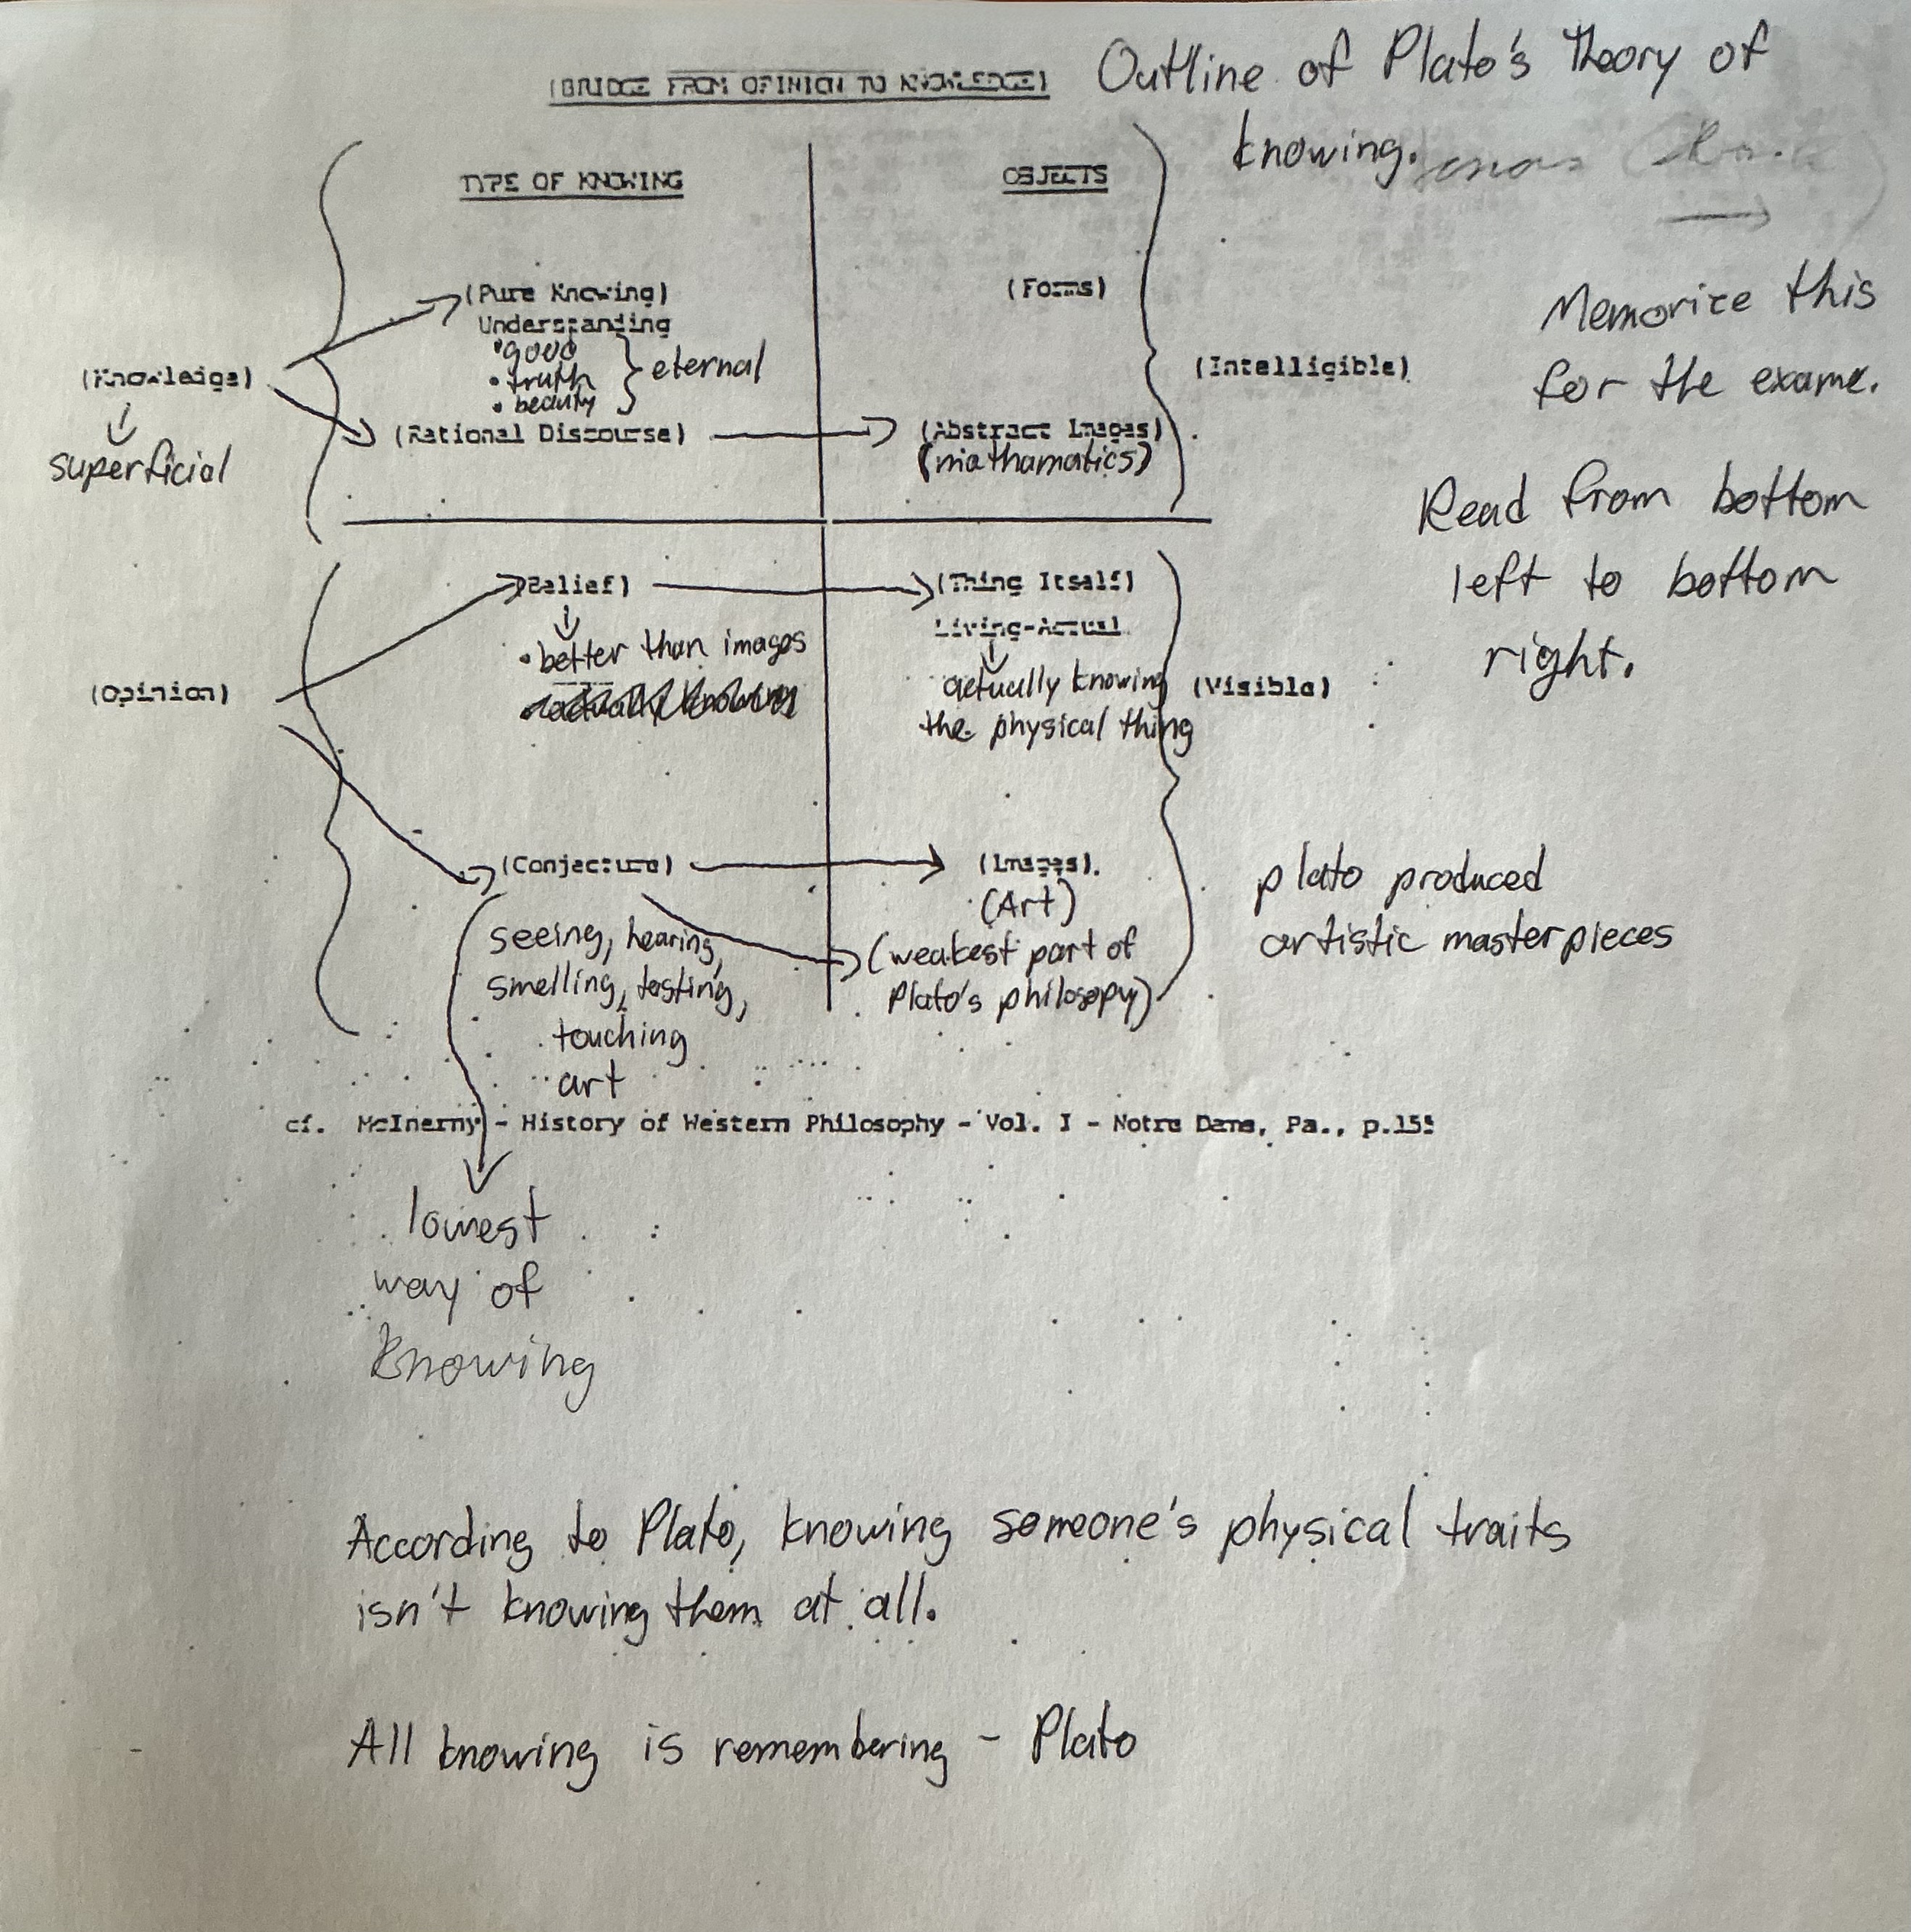 (BRIDGE FROM OPINION TO KNOWLEDGE) Outline of Plato's Theory of
knowing.
TYPE OF KNOWING OBJECTS
(Pure Knowing) (Forms)
Understanding
• good
• truth
• beauty
eternal
(Knowledge)
superficial
(Intelligible)
(Rational Discourse) (Abstract Images)
(mathamatics)
Memorize this
for the exame.
Read from bottom
left to bottom
right.
(Belief) (Thing Itself)
Living-Actual
• better than images
actually knowing
actually knowing
the physical thing
(Opinion) (Visible)
(Conjecture) (Images).
(Art)
seeing, hearing,
smelling, tasting,
touching
art
(weakest part of
Plato's philosopy)
plato produced
artistic masterpieces
cf. McInerny - History of Western Philosophy - Vol. I - Notre Dame, Pa., p.155
lowest
way of
knowing
According to Plato, knowing someone's physical traits
isn't knowing them at all.
All knowing is remembering - Plato